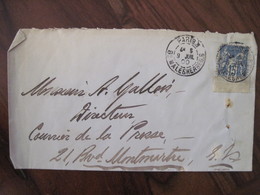 PARIS
8
9 JUIL
MALESHERBES
15
Monsieur A. Gallois
Directeur
Courrier de la Presse
21, Bould Montmartre, E.V.